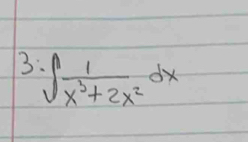 3: ∫ 1/(x³+2x²) dx